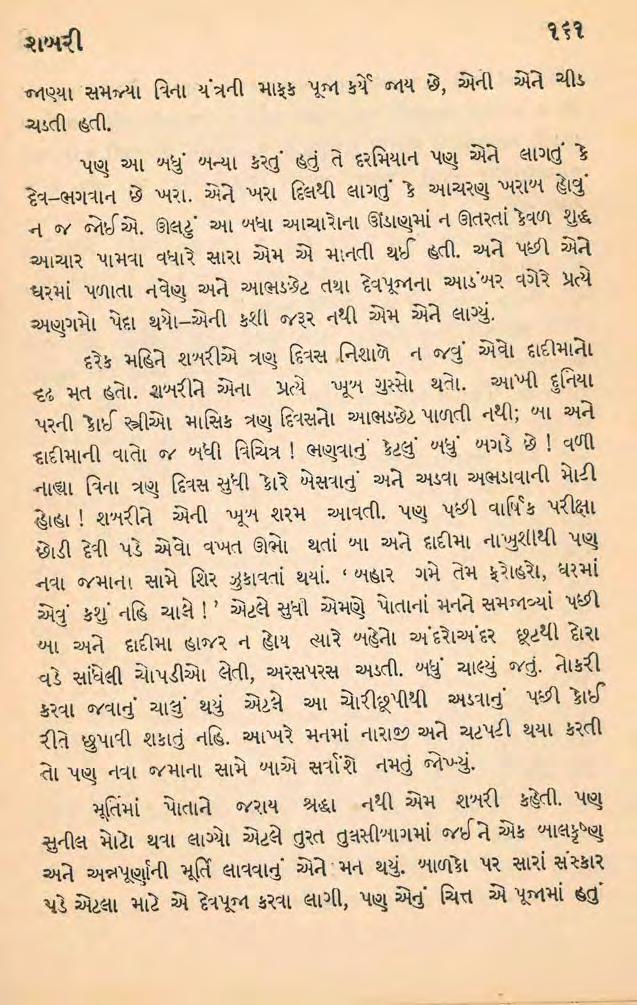 શબરી
૧૬૧
જાણ્યા સમજ્યા વિના યંત્રની માફક પૂજા કર્યે જાય છે, એની એને ચીડ
ચડતી હતી.
પણ આ બધું બન્યા કરતું હતું તે દરમિયાન પણ એને લાગતું કે
દેવ–ભગવાન છે ખરા. એને ખરા દિલથી લાગતું કે આચરણ ખરાબ હોવું
ન જ જોઈએ. ઊલટું આ બધા આચારોના ઊંડાણમાં ન ઊતરતાં કેવળ શુદ્ધ
આચાર પામવા વધારે સારા એમ એ માનતી થઈ હતી. અને પછી એને
ઘરમાં પળાતા નવેણ અને આભડછેટ તથા દેવપૂજાના આડંબર વગેરે પ્રત્યે
અણગમો પેદા થયો—એની કશી જરૂર નથી એમ એને લાગ્યું.
દરેક મહિને શબરીએ ત્રણ દિવસ નિશાળે ન જવું એવો દાદીમાનો
દૃઢ મત હતો. શબરીને એના પ્રત્યે ખૂબ ગુસ્સો થતો. આખી દુનિયા
પરની કોઈ સ્ત્રીઓ માસિક ત્રણ દિવસનો આભડછેટ પાળતી નથી; બા અને
દાદીમાની વાતો જ બધી વિચિત્ર ! ભણવાનું કેટલું બધું બગડે છે ! વળી
નાહ્યા વિના ત્રણ દિવસ સુધી કોરે બેસવાનું અને અડવા અભડાવાની મોટી
હોહા ! શબરીને એની ખૂબ શરમ આવતી. પણ પછી વાર્ષિક પરીક્ષા
છોડી દેવી પડે એવો વખત ઊભો થતાં બા અને દાદીમા નાખુશીથી પણ
નવા જમાના સામે શિર ઝુકાવતાં થયાં. ‘ બહાર ગમે તેમ ફરોહરો, ઘરમાં
એવું કશું નહિ ચાલે ! ’ એટલે સુધી એમણે પોતાનાં મનને સમજાવ્યાં પછી
બા અને દાદીમા હાજર ન હોય ત્યારે બહેનો અંદરોઅંદર છૂટથી દોરા
વડે સાંધેલી ચોપડીઓ લેતી, અરસપરસ અડતી. બધું ચાલ્યું જતું. નોકરી
કરવા જવાનું ચાલું થયું એટલે આ ચોરીછૂપીથી અડવાનું પછી કોઈ
રીતે છુપાવી શકાતું નહિ. આખરે મનમાં નારાજી અને ચટપટી થયા કરતી
તો પણ નવા જમાના સામે બાએ સર્વાંશે નમતું જોખ્યું.
મૂર્તિમાં પોતાને જરાય શ્રદ્ધા નથી એમ શબરી કહેતી. પણ
સુનીલ મોટો થવા લાગ્યો એટલે તુરત તુલસીબાગમાં જઈને એક બાલકૃષ્ણ
અને અન્નપૂર્ણાની મૂર્તિ લાવવાનું એને મન થયું. બાળકો પર સારાં સંસ્કાર
પડે એટલા માટે એ દેવપૂજા કરવા લાગી, પણ એનું ચિત્ત એ પૂજામાં હતું